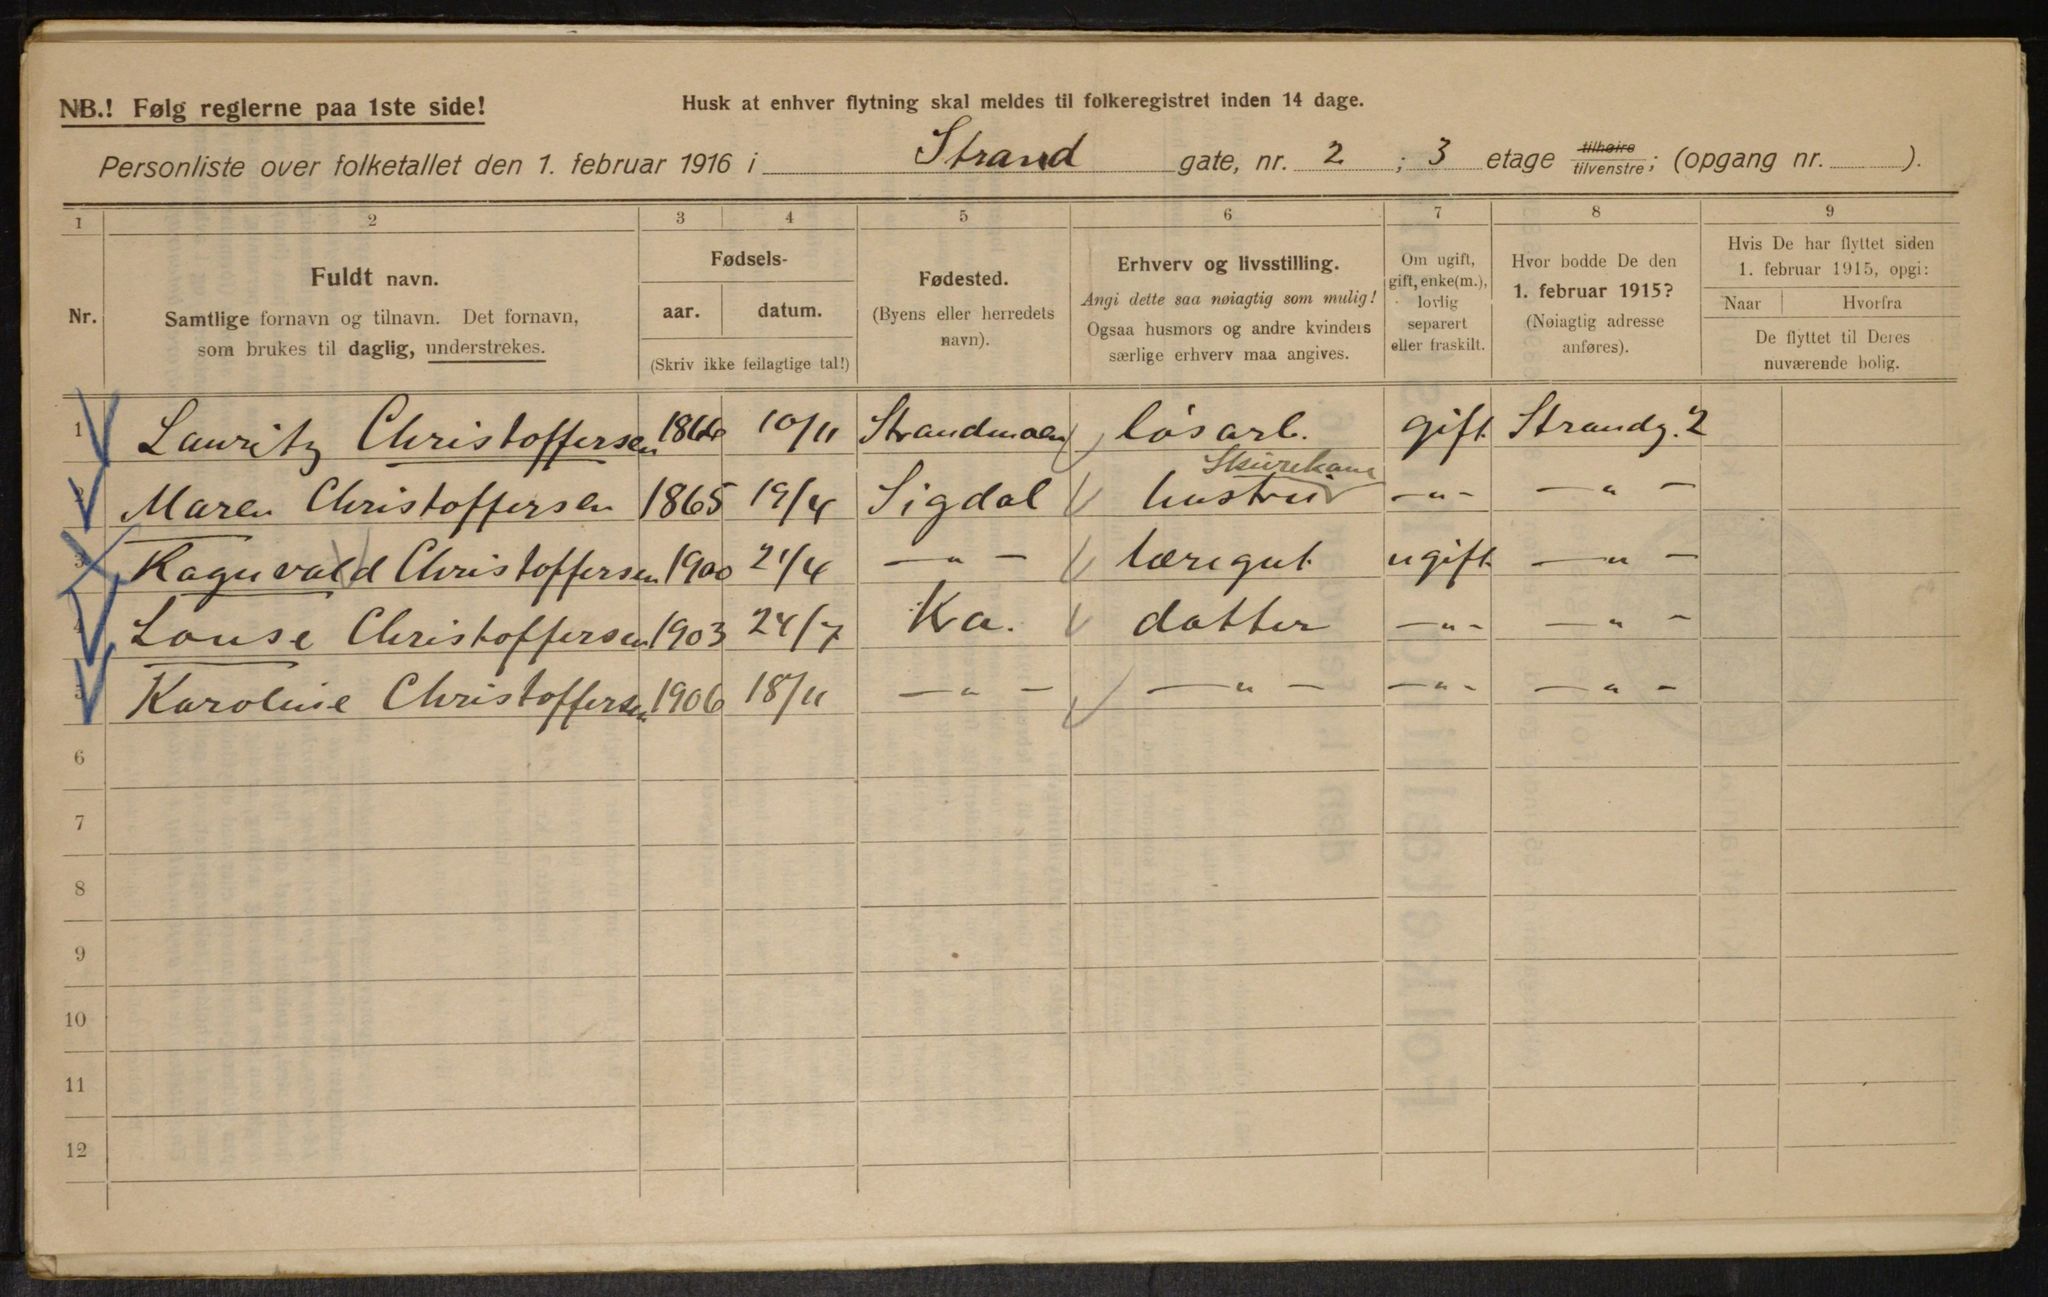 NB.! Følg reglerne paa 1ste side!
Husk at enhver flytning skal meldes til folkeregistret inden 14 dage.
Personliste over folketallet den 1. februar 1916 i Strand gate, nr. 2 ; 3 etage tilhøire/tilvenstre; (opgang nr. ).
1 2 3 4 5 6 7 8 9
Nr.
Fuldt navn.
Samtlige fornavn og tilnavn. Det fornavn,
som brukes til daglig, understrekes.
Fødsels-
aar. datum.
(Skriv ikke feilagtige tal!)
Fødested.
(Byens eller herredets
navn).
Erhverv og livsstilling.
Angi dette saa nøiagtig som mulig!
Ogsaa husmors og andre kvinders
særlige erhverv maa angives.
Om ugift,
gift, enke(m.),
lovlig
separert
eller fraskilt.
Hvor bodde De den
1. februar 1915?
(Nøiagtig adresse
anføres).
Hvis De har flyttet siden
1. februar 1915, opgi:
Naar Hvorfra
De flyttet til Deres
nuværende bolig.
1 Lauritz Christoffersen 10/11 løsarb. gift Strandg. 2
Skurekone
2 Maren Christoffersen 1865 19/4 Sigdal hustru —"— —"—
3 Ragnvald Christoffersen 1900 21/4 —"— læregut ugift —"—
4 Louise Christoffersen 1903 24/7 Kra. datter —"— —"—
5 Karoline Christoffersen 1906 18/11 —"— —"— —"— —"—
6
7
8
9
10
11
12